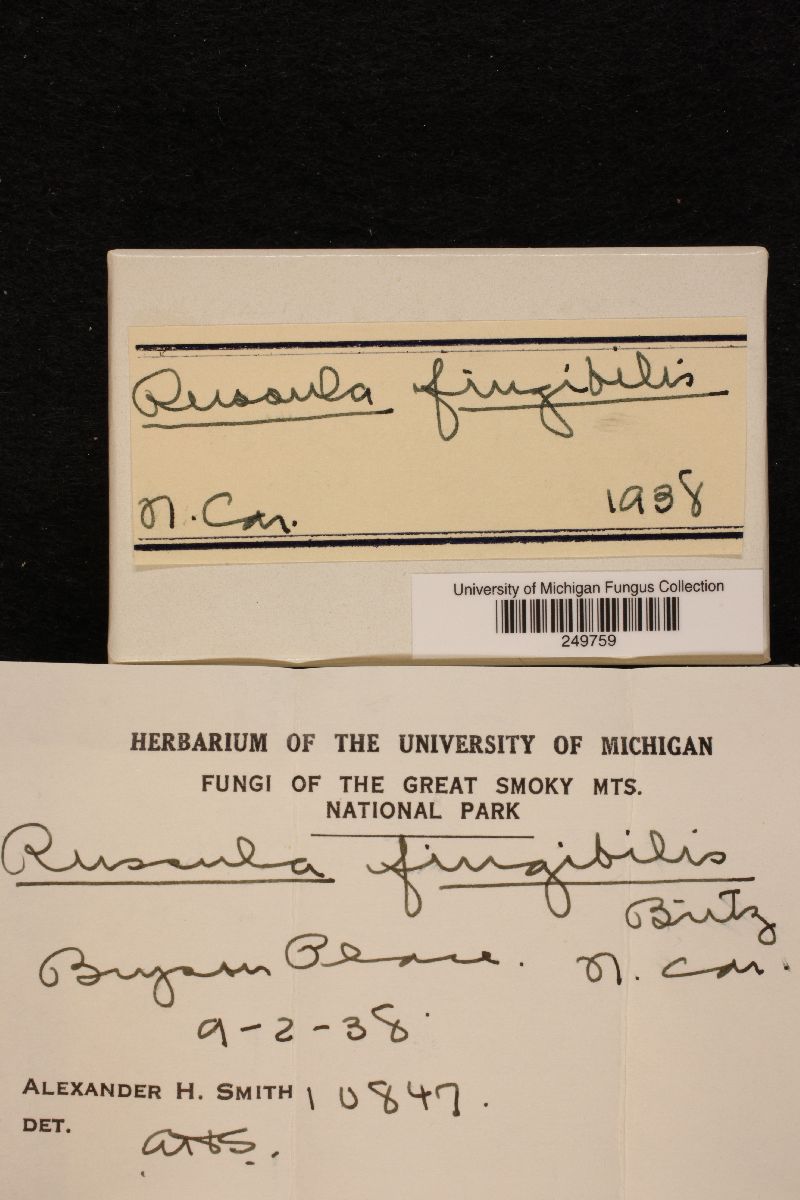 Russula fingibilis
N. Car. 1938
University of Michigan Fungus Collection
249759
HERBARIUM OF THE UNIVERSITY OF MICHIGAN
FUNGI OF THE GREAT SMOKY MTS.
NATIONAL PARK
Russula fingibilis
Britz
Bryson Place. N. Car.
9-2-38
ALEXANDER H. SMITH 10847.
DET. AHS.